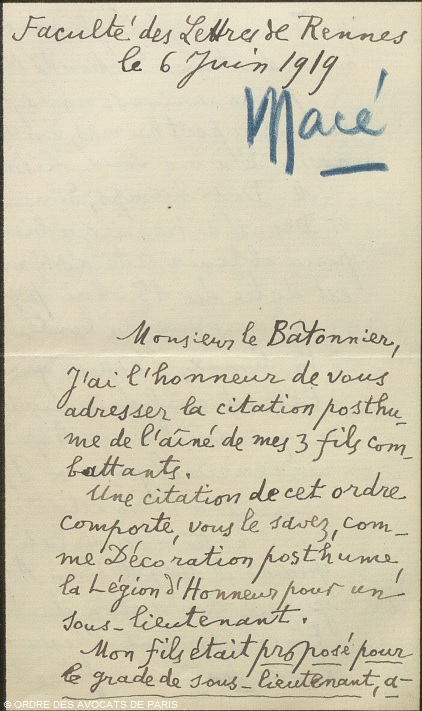 Faculté des Lettres de Rennes
le 6 Juin 1919
Macé
Monsieur le Bâtonnier,
J'ai l'honneur de vous
adresser la citation posthu-
me de l'aîné de mes 3 fils com-
battants.
Une citation de cet ordre
comporte, vous le savez, com-
me Décoration posthume,
la Légion d'Honneur pour un
sous-lieutenant.
Mon fils était proposé pour
le grade de sous-lieutenant, a-
© ORDRE DES AVOCATS DE PARIS